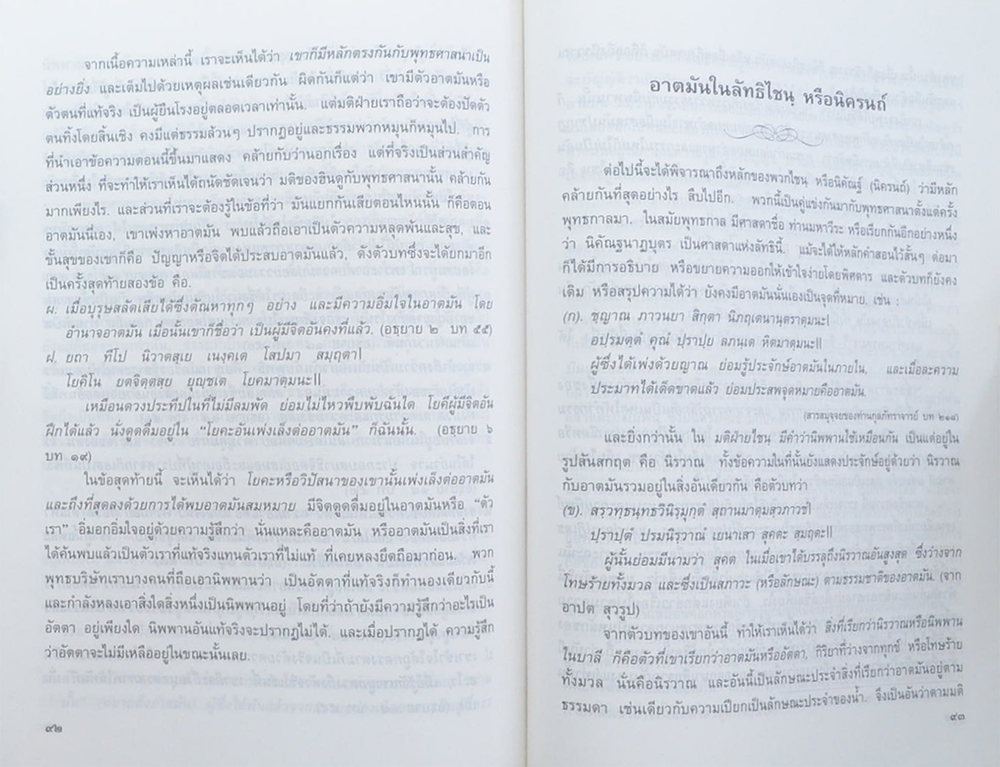 จากเนื้อความเหล่านี้ เราจะเห็นได้ว่า เขาก็มีหลักตรงกันกับพุทธศาสนาเป็น
อย่างยิ่ง และเต็มไปด้วยเหตุผลเช่นเดียวกัน ผิดกันก็แต่ว่า เขามีตัวอาตมันหรือ
ตัวตนที่แท้จริง เป็นผู้ยืนโรงอยู่ตลอดเวลาเท่านั้น. แต่มติฝ่ายเราถือว่าจะต้องปัดตัว
ตนทิ้งโดยสิ้นเชิง คงมีแต่ธรรมล้วนๆ ปรากฏอยู่และธรรมพวกหมุนก็หมุนไป. การ
ที่นำเอาข้อความตอนนี้ขึ้นมาแสดง คล้ายกับว่านอกเรื่อง แต่ที่จริงเป็นส่วนสำคัญ
ส่วนหนึ่ง ที่จะทำให้เราเห็นได้ถนัดชัดเจนว่า มติของฮินดูกับพุทธศาสนานั้น คล้ายกัน
มากเพียงไร. และส่วนที่เราจะต้องรู้ในข้อที่ว่า มันแยกกันเสียตอนไหนนั้น ก็คือตอน
อาตมันนี่เอง, เขาเพ่งหาอาตมัน พบแล้วถือเอาเป็นตัวความหลุดพ้นและสุข, และ
ขั้นสุขของเขาก็คือ ปัญญาหรือจิตได้ประสบอาตมันแล้ว, ดังตัวบทซึ่งจะได้ยกมาอีก
เป็นครั้งสุดท้ายสองข้อ คือ.
ผ. เมื่อบุรุษสลัดเสียได้ซึ่งตัณหาทุกๆ อย่าง และมีความอิ่มใจในอาตมัน โดย
อำนาจอาตมัน เมื่อนั้นเขาก็ชื่อว่า เป็นผู้มีจิตอันคงที่แล้ว. (อธฺยาย ๒ บท ๕๕)
ฝ. ยถา ทีโป นิวาตสฺเย เนงฺคเต โสปมา สมฺฤตา|
โยคิโน ยตจิตฺตสฺย ยุญฺชเต โยคมาตฺมนะ||
เหมือนดวงประทีปในที่ไม่มีลมพัด ย่อมไม่ไหวพึบพับฉันใด โยคีผู้มีจิตอัน
ฝึกได้แล้ว นั่งดูดดื่มอยู่ใน “โยคะอันเพ่งเล็งต่ออาตมัน” ก็ฉันนั้น. (อธฺยาย ๖
บท ๑๙)
ในข้อสุดท้ายนี้ จะเห็นได้ว่า โยคะหรือวิปัสนาของเขานั้นเพ่งเล็งต่ออาตมัน
และถึงที่สุดลงด้วยการได้พบอาตมันสมหมาย มีจิตดูดดื่มอยู่ในอาตมันหรือ “ตัว
เรา” อิ่มอกอิ่มใจอยู่ด้วยความรู้สึกว่า นั่นแหละคืออาตมัน หรืออาตมันเป็นสิ่งที่เรา
ได้ค้นพบแล้วเป็นตัวเราที่แท้จริงแทนตัวเราที่ไม่แท้ ที่เคยหลงยึดถือมาก่อน. พวก
พุทธบริษัทเราบางคนที่ถือเอานิพพานว่า เป็นอัตตาที่แท้จริงก็ทำนองเดียวกับนี้
และกำลังหลงเอาสิ่งใดสิ่งหนึ่งเป็นนิพพานอยู่ โดยที่ว่าถ้ายังมีความรู้สึกว่าอะไรเป็น
อัตตา อยู่เพียงใด นิพพานอันแท้จริงจะปรากฏไม่ได้. และเมื่อปรากฏได้ ความรู้สึก
ว่าอัตตาจะไม่มีเหลืออยู่ในขณะนั้นเลย.
๙๒
อาตมันในลัทธิไชนฺ หรือนิครนถ์
ต่อไปนี้จะได้พิจารณาถึงหลักของพวกไชนฺ หรือนิคัณฐ์ (นิครนถ์) ว่ามีหลัก
คล้ายกันที่สุดอย่างไร สืบไปอีก. พวกนี้เป็นคู่แข่งกันมากับพุทธศาสนาตั้งแต่ครั้ง
พุทธกาลมา. ในสมัยพุทธกาล มีศาสดาชื่อ ท่านมหาวีระ หรือเรียกกันอีกอย่างหนึ่ง
ว่า นิคัณฐนาฏบุตร เป็นศาสดาแห่งลัทธินี้. แม้จะได้ให้หลักคำสอนไว้สั้นๆ ต่อมา
ก็ได้มีการอธิบาย หรือขยายความออกให้เข้าใจง่ายโดยพิศดาร และตัวบทก็ยังคง
เดิม หรือสรุปความได้ว่า ยังคงมีอาตมันนั่นเองเป็นจุดที่หมาย. เช่น
(ก). ชฺญาณ ภาวนยา สิกฺตา นิภฤเตนานฺตราตฺมนะ|
อปฺรมตฺตํ คุณํ ปฺราปฺย ลภนฺเต หิตมาตฺมนะ||
ผู้ซึ่งได้เพ่งด้วยญาณ ย่อมรู้ประจักษ์อาตมันในภายใน, และเมื่อละความ
ประมาทได้เด็ดขาดแล้ว ย่อมประสพจุดหมายคืออาตมัน.
(สารสมุจฺจยของท่านกุลภัทราจารย์ บท ๒๑๘)
และยิ่งกว่านั้น ใน มติฝ่ายไชนฺ มีคำว่านิพพานใช้เหมือนกัน เป็นแต่อยู่ใน
รูปสันสกฤต คือ นิรวาณ ทั้งข้อความในที่นั้นยังแสดงประจักษ์อยู่ด้วยว่า นิรวาณ
กับอาตมันรวมอยู่ในสิ่งอันเดียวกัน คือตัวบทว่า
(ข). สรฺวทฺธนฺทรวินิรฺมุกฺตํ สฺถานมาตฺมสฺวภาวชํ|
ปฺราปฺตํ ปรมนิรฺวาณํ เยนาเสา สุคตะ สฺมฤตะ||
ผู้นั้นย่อมมีนามว่า สุคต ในเมื่อเขาได้บรรลุถึงนิรวาณอันสูงสุด ซึ่งว่างจาก
โทษร้ายทั้งมวล และซึ่งเป็นสภาวะ (หรือลักษณะ) ตามธรรมชาติของอาตมัน. (จาก
อาปฺต สฺวรูป)
จากตัวบทของเขาอันนี้ ทำให้เราเห็นได้ว่า สิ่งที่เรียกว่านิรวาณหรือนิพพาน
ในบาลี ก็คือตัวที่เขาเรียกว่าอาตมันหรืออัตตา, กิริยาที่ว่างจากทุกข์ หรือโทษร้าย
ทั้งมวล นั่นคือนิรวาณ และอันนี้เป็นลักษณะประจำสิ่งที่เรียกว่าอาตมันอยู่ตาม
ธรรมดา เช่นเดียวกับความเปียกเป็นลักษณะประจำของน้ำ. จึงเป็นอันว่าตามมติ
๙๓